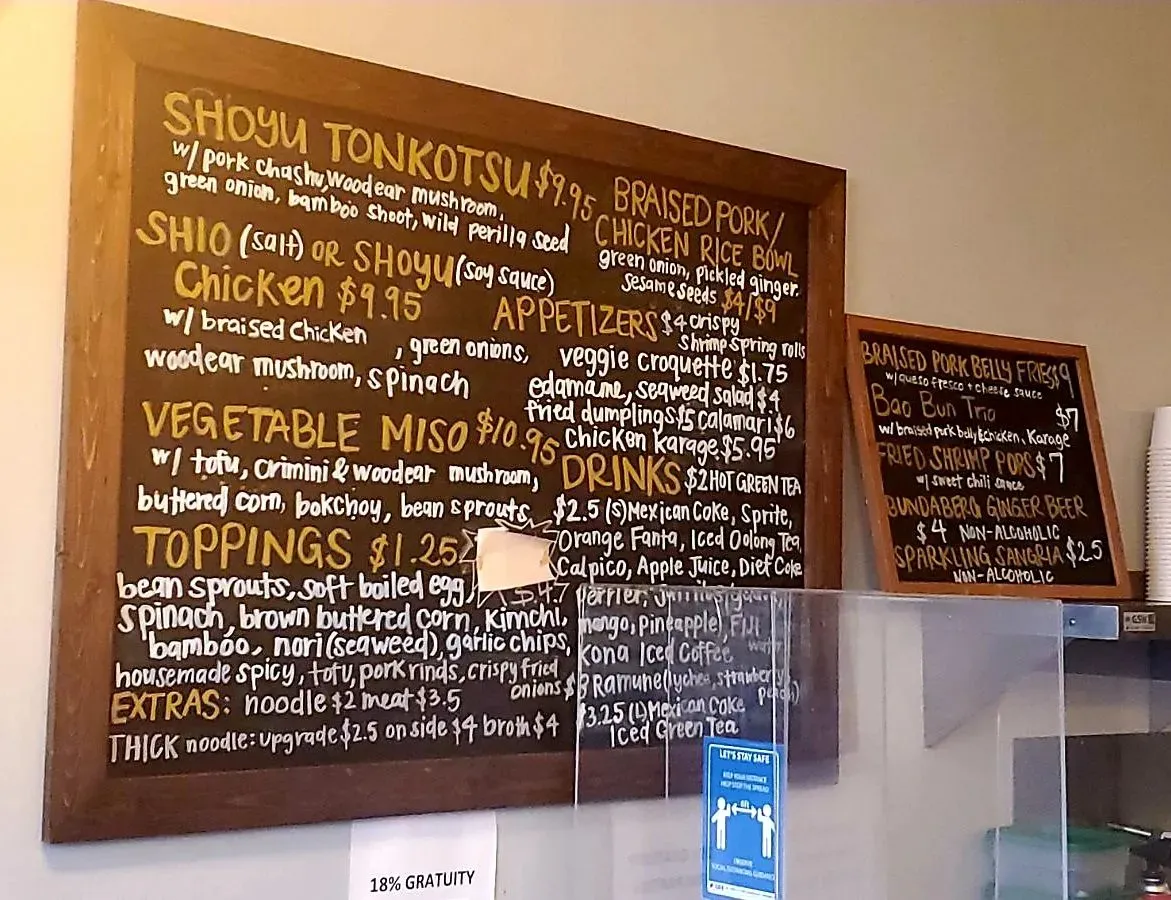 SHOYU TONKOTSU $9.95
w/ pork chashu, Woodear mushroom,
green onion, bamboo shoot, wild perilla seed
SHIO (salt) OR SHOYU (soy sauce)
Chicken $9.95
w/ braised chicken , green onions,
woodear mushroom, spinach
VEGETABLE MISO $10.95
w/ tofu, crimini & woodear mushroom,
buttered corn, bokchoy, bean sprouts
TOPPINGS $1.25
bean sprouts, soft boiled egg,
spinach, brown buttered corn, kimchi,
bamboo, nori (seaweed), garlic chips,
housemade spicy, tofu, pork rinds, crispy fried
onions
EXTRAS: noodle $2 meat $3.5
THICK noodle: upgrade $2.5 on side $4 broth $4
BRAISED PORK/
CHICKEN RICE BOWL
green onion, pickled ginger,
sesame seeds $4/$9
APPETIZERS $4 crispy
shrimp spring rolls
veggie croquette $1.75
edamame, seaweed salad $4
fried dumplings $5 calamari $6
chicken karage $5.95
DRINKS $2 HOT GREEN TEA
$2.5 (S) Mexican Coke, Sprite,
Orange Fanta, Iced Oolong Tea,
Calpico, Apple Juice, Diet Coke
Perrier,
mango, pineapple), FIJI
water
Kona Iced Coffee
$3 Ramune (lychee, strawberry,
peach)
$3.25 (L) Mexican Coke
Iced Green Tea
BRAISED PORK BELLY FRIES $9
w/ queso fresco + cheese sauce
Bao Bun Trio $7
w/ braised pork belly & chicken, Karage
FRIED SHRIMP POPS $7
w/ sweet chili sauce
BUNDABERG GINGER BEER
$4 NON-ALCOHOLIC
SPARKLING SANGRIA $2.5
NON-ALCOHOLIC
LET'S STAY SAFE
KEEP YOUR DISTANCE
HELP STOP THE SPREAD
6ft
18% GRATUITY